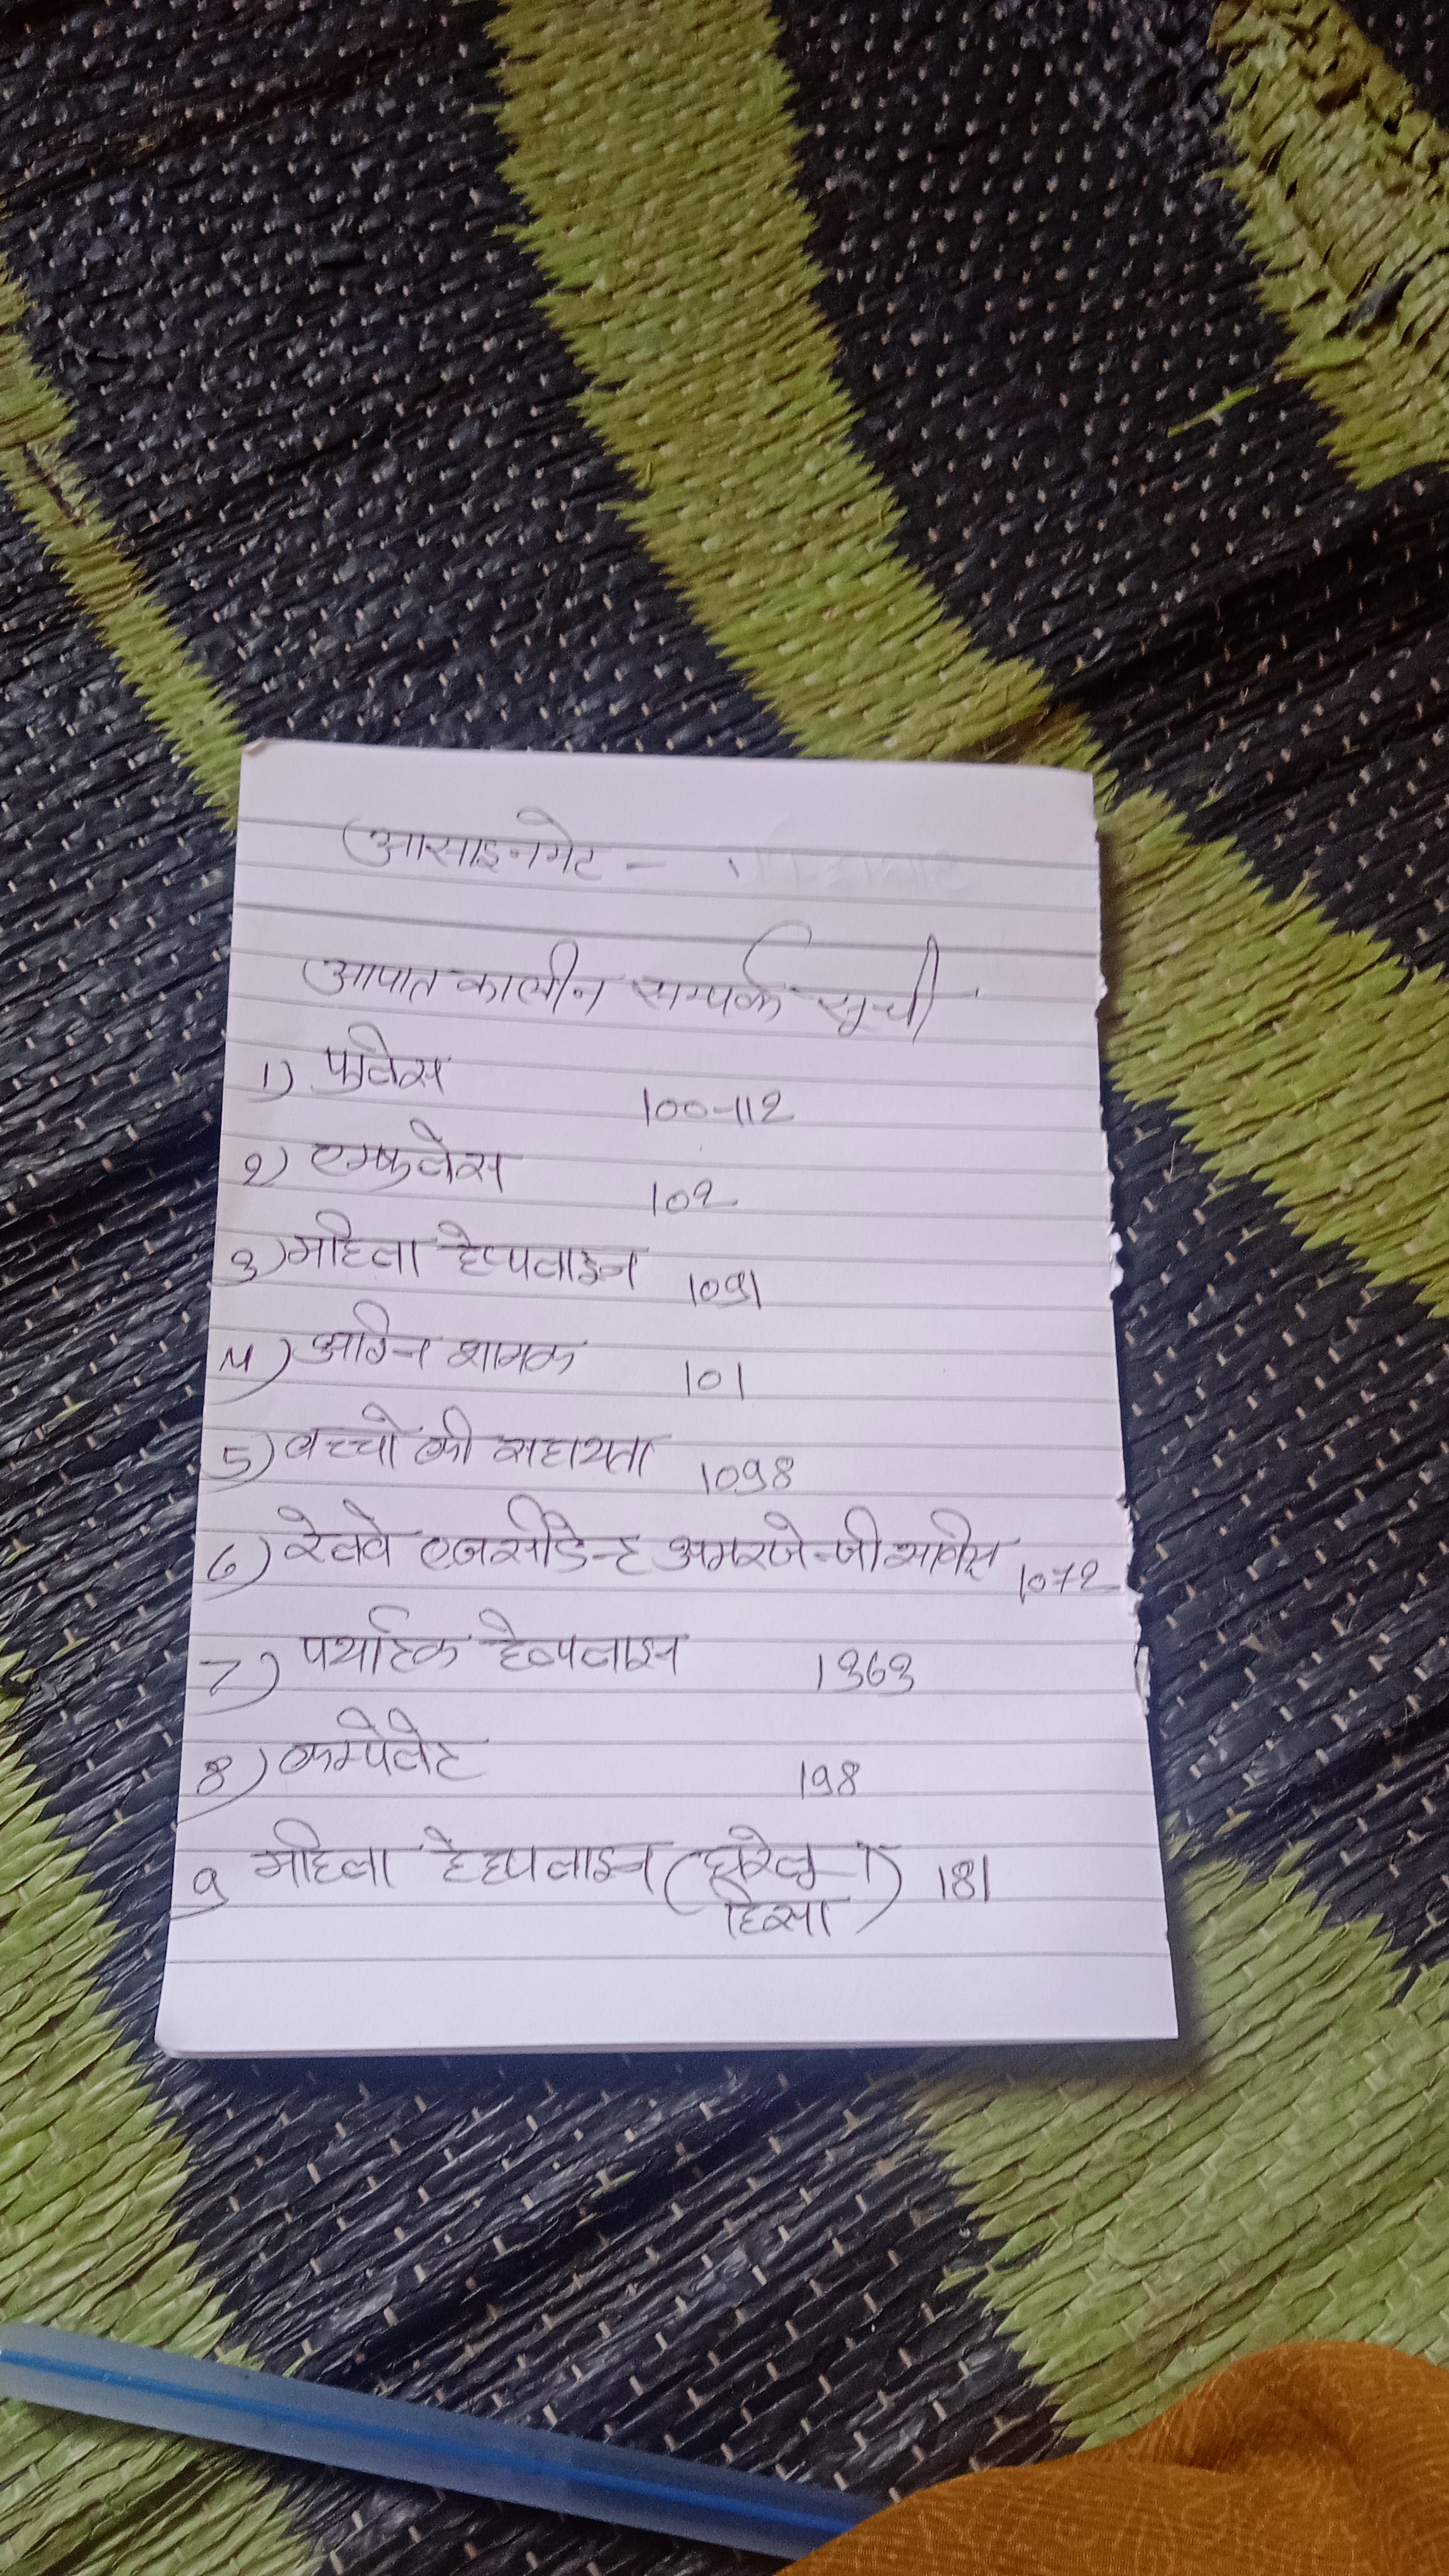 आसाइनमेट -
आपात कालीन सम्पर्क सूची
1) पुलिस 100-112
2) एम्बुलेंस 102
3) महिला हेल्पलाइन 1091
4) अग्नि शामक 101
5) बच्चो की सहायता 1098
6) रेलवे एक्सीडेन्ट अमरजेन्जी सर्विस 1072
7) पर्याटक हेल्पलाइन 1363
8) कम्पेलेट 198
9 महिला हेल्पलाइन (घरेलू हिंसा) 181